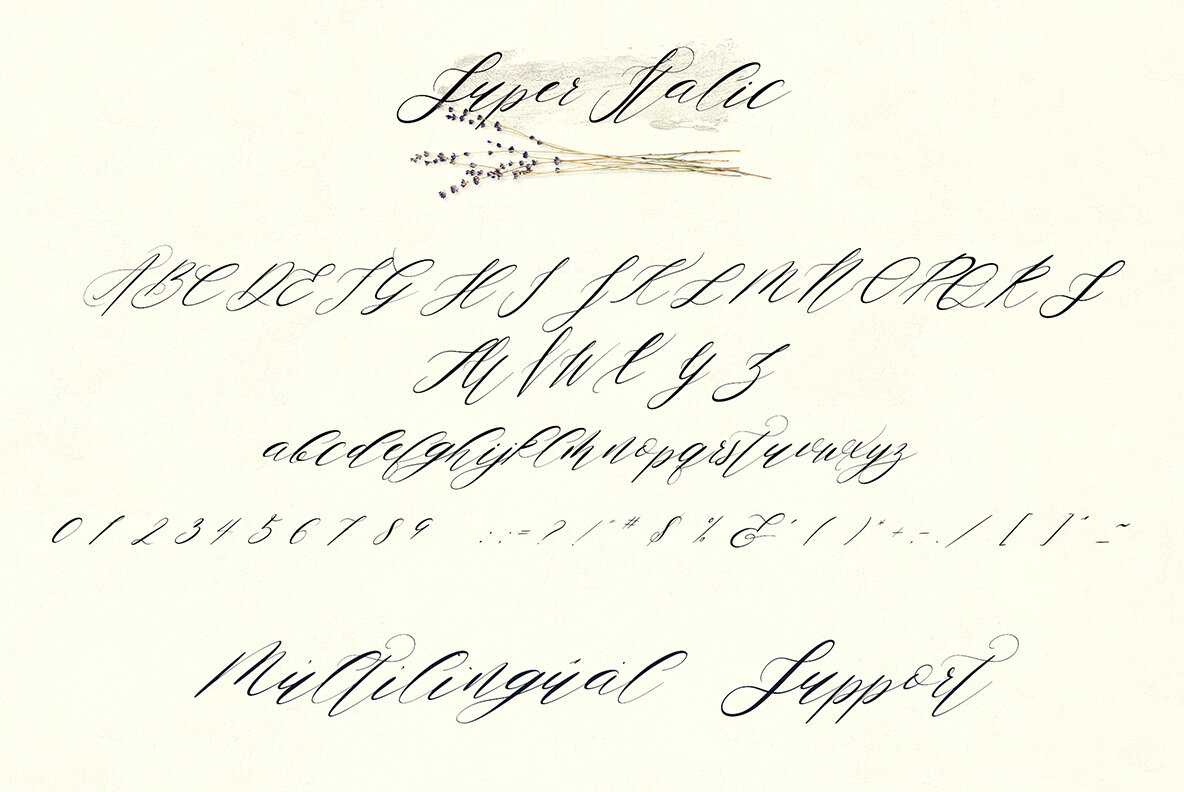 Super Italic
A B C D E F G H I J K L M N O P Q R S
T U V W X Y Z
a b c d e f g h i j k l m n o p q r s t u v w x y z
0 1 2 3 4 5 6 7 8 9 : ; = ? ! " # $ % & ' ( ) * + - . / [ ] _ ~
Multilingual Support